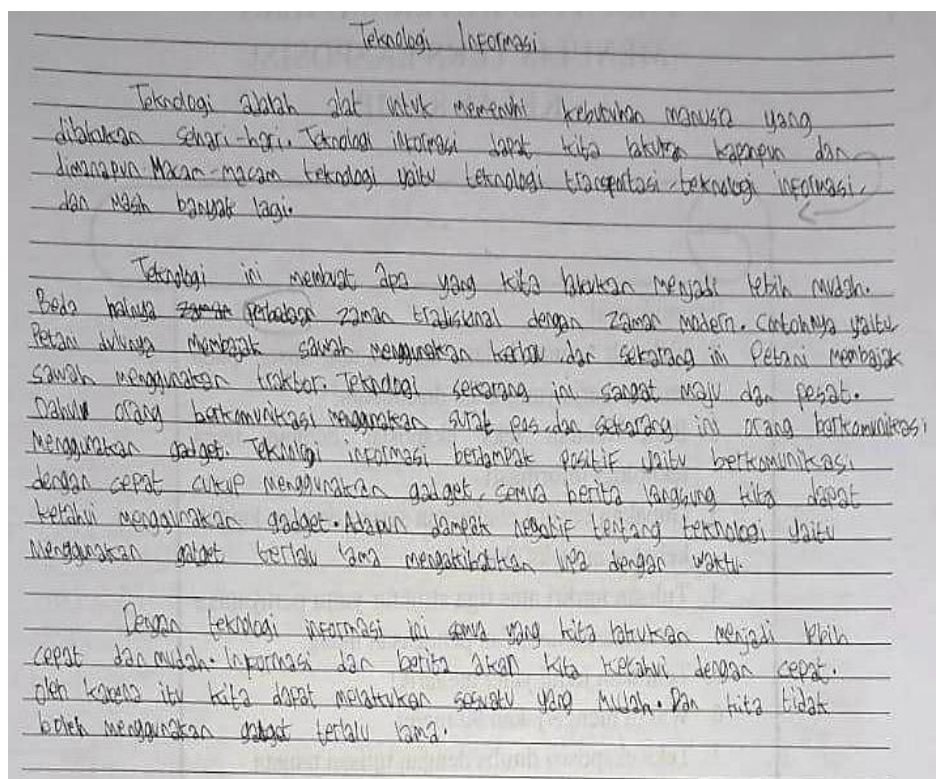 Teknologi Informasi
Teknologi adalah alat untuk memenuhi kebutuhan manusia yang
dilakukan sehari-hari. Teknologi informasi dapat kita lakukan kapanpun dan
dimanapun. Macam-macam teknologi yaitu teknologi transportasi, teknologi informasi,
dan masih banyak lagi.
Teknologi ini membuat apa yang kita lakukan menjadi lebih mudah.
Beda halnya zaman perbedaan zaman tradisional dengan zaman modern. Contohnya yaitu
Petani dulunya membajak sawah menggunakan kerbau dan sekarang ini Petani membajak
sawah menggunakan traktor. Teknologi sekarang ini sangat maju dan pesat.
Dahulu orang berkomunikasi menggunakan surat pos, dan sekarang ini orang berkomunikasi
menggunakan gadget. Teknologi informasi berdampak positif yaitu berkomunikasi
dengan cepat cukup menggunakan gadget, semua berita langsung kita dapat
ketahui menggunakan gadget. Adapun dampak negatif tentang teknologi yaitu
Menggunakan gadget terlalu lama mengakibatkan lupa dengan waktu.
Dengan teknologi informasi ini semua yang kita lakukan menjadi lebih
cepat dan mudah. Informasi dan berita akan kita ketahui dengan cepat.
oleh karena itu kita dapat melakukan sesuatu yang mudah. Dan kita tidak
boleh menggunakan gadget terlalu lama.